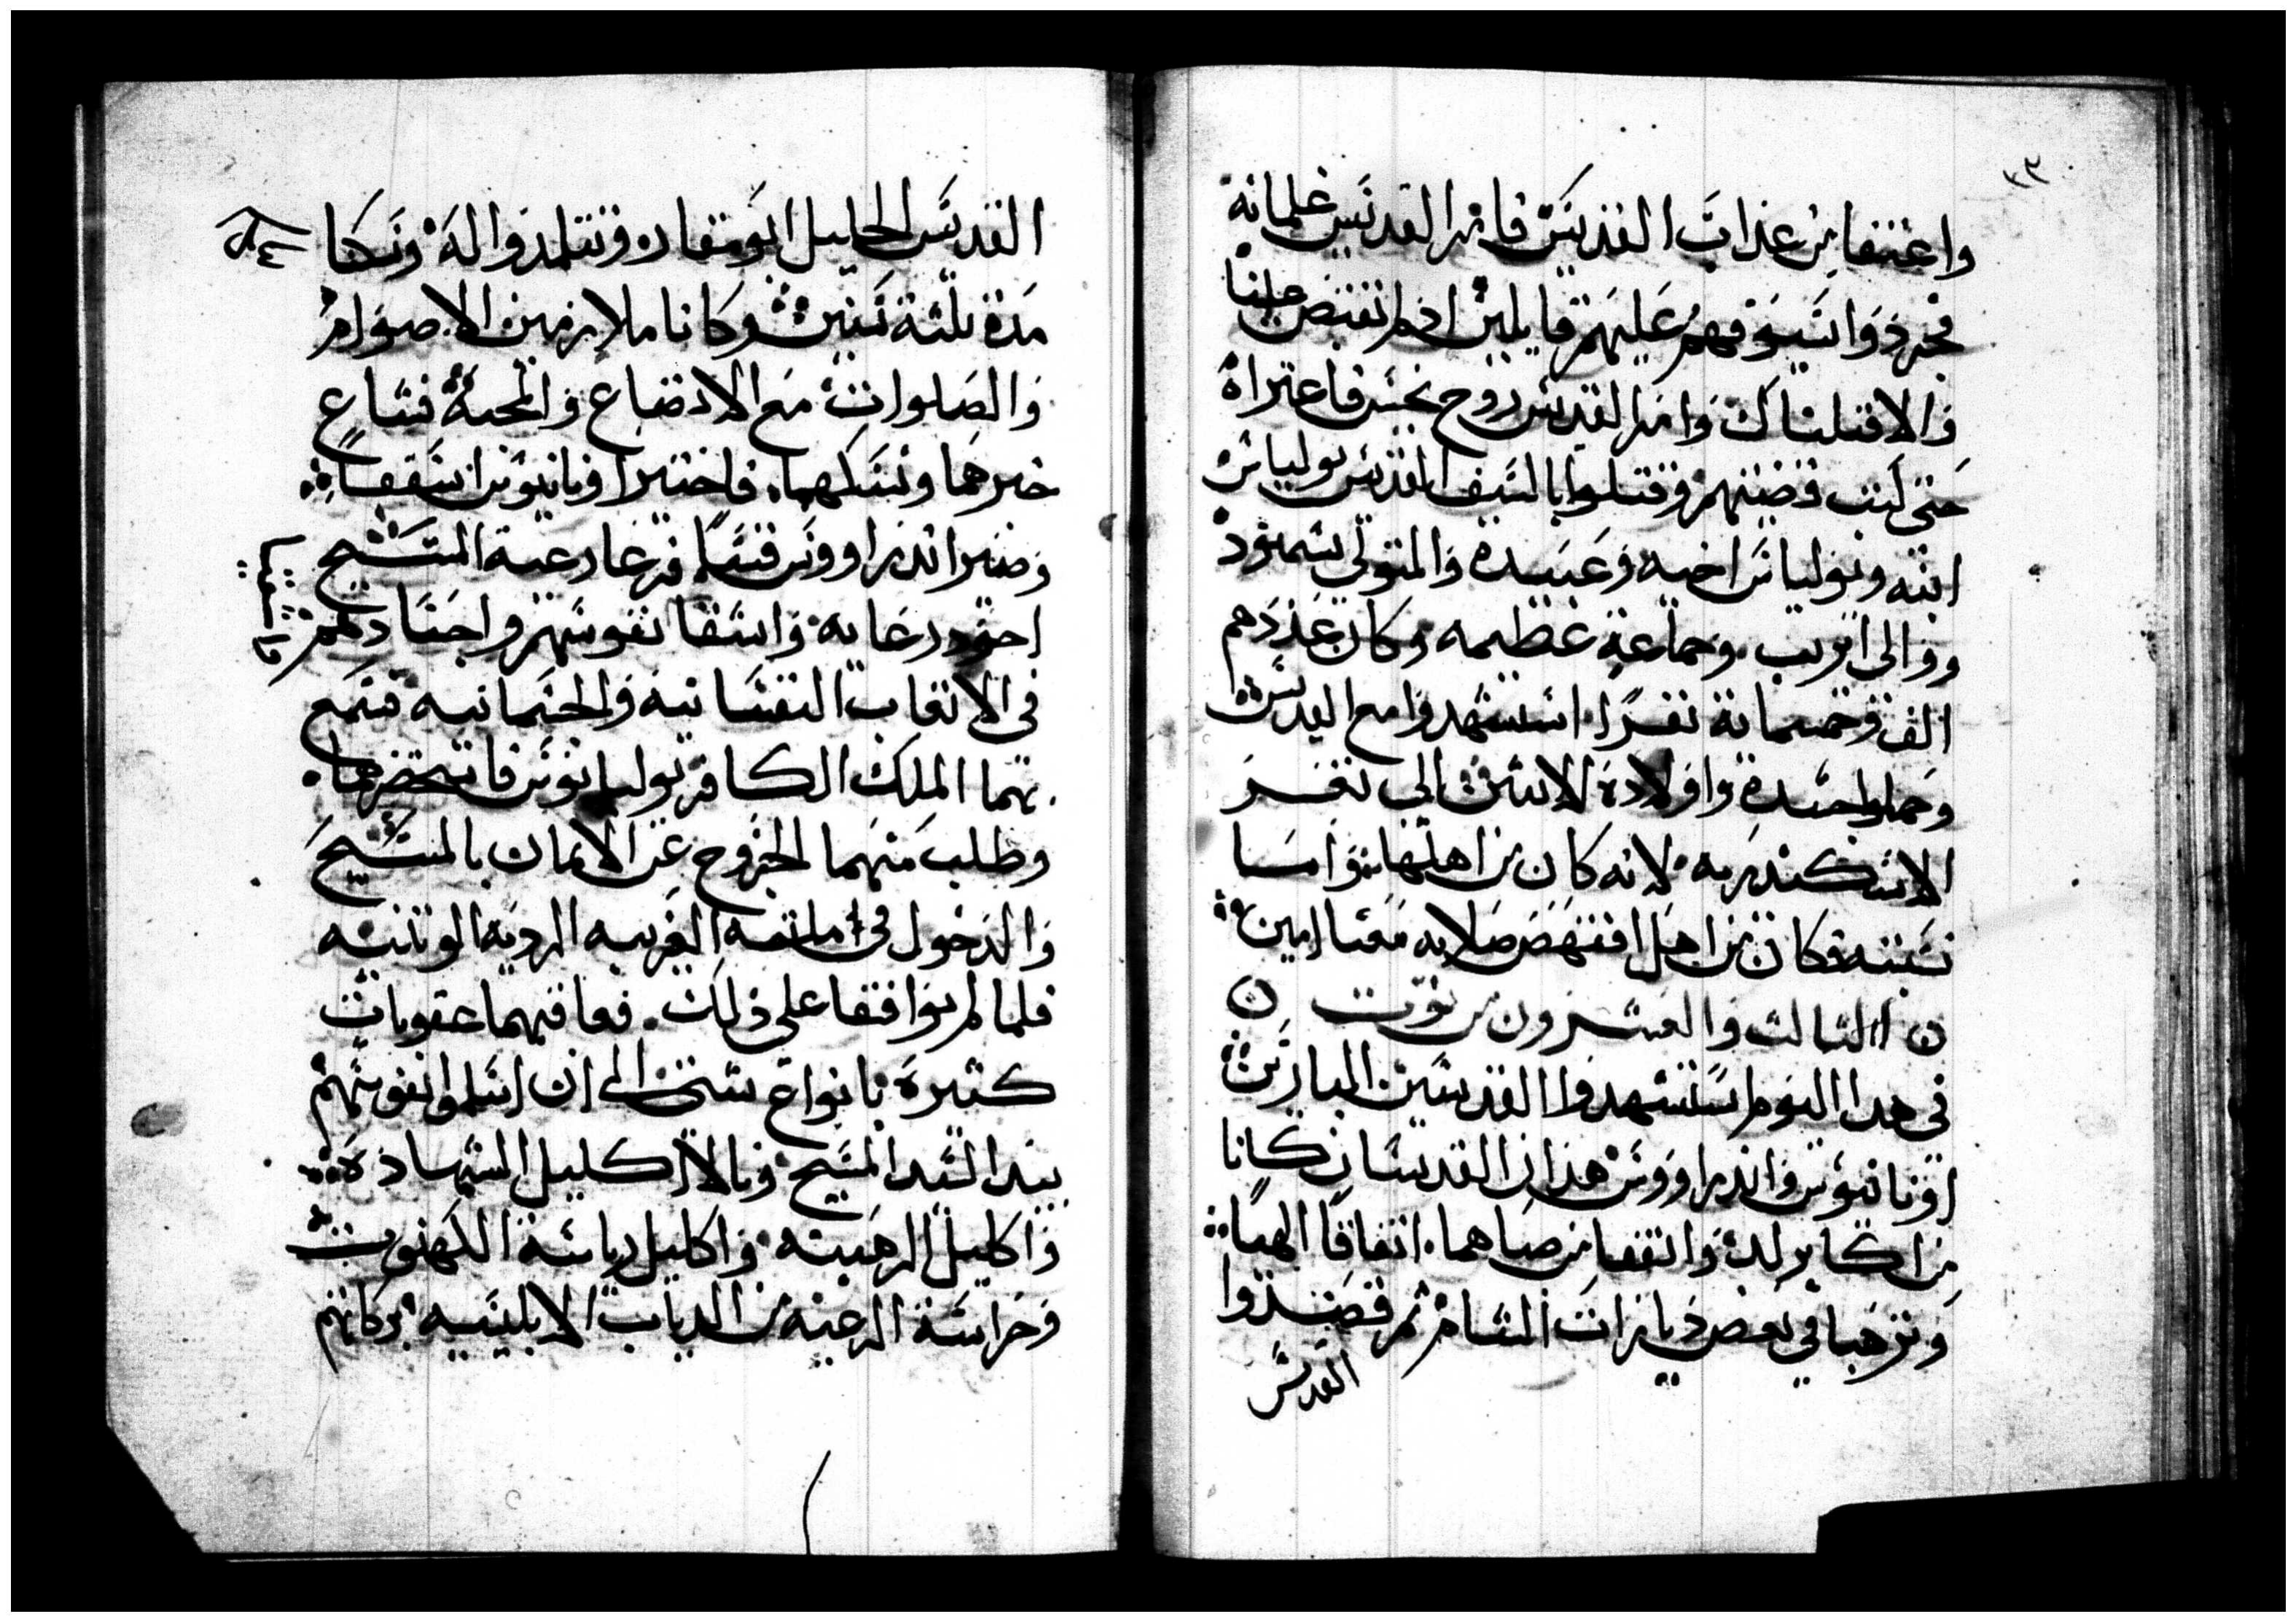 ٢٣
واعتفا من عذاب القديس فامر القديس غلمانه
فجردوا سيوفهم عليهم قايلين ان لم تقبض علينا
والا قتلناك وامر القديس روح نجس فاعتراه
حتى كتب قضيتهم وقتلوا بالسيف القديس يولياس
ابنه ويولياس اخيه وعبيده والمتولي بسمنود
ووالي اتريب وجماعة عظيمه وكان عددهم
الف وخمسماية نفرا استشهدوا مع القديس
وحملوا جسده واولاده الاثنين الي ثغر
الاسكندريه لانه كان من اهلها واما
كان من اهل اقفهص صلاته معنا امين
الثالث والعشرون من توت
في هدا اليوم استشهدوا القديسين المبارين
اونانيوس واندراووس هذان القديسان كانا
من اكابر لد واتفقا من صباهما اتفاقا الهيا
وترهبا في بعض ديارات الشام ثم قصدوا
القديس
القديس الجليل ابو مقار وتتلمدوا له ونسكا
مدة تلتة سنين وكانا ملازمين الاصوام
والصلوات مع الاتضاع والمحبة فشاع
خبرهما ونسكهما فاختير اونانيوس اسقفا
وصير اندراووس قسا فرعا رعية المسيح
احود رعايه واسقا نفوسهم واجسادهم
في الاتعاب النفسانيه والجسمانيه فسمع
بهما الملك الكافر يوليانوس فاستحضرهما
وطلب منهما الخروج عن الايمان بالمسيح
والدخول في امانته الغريبه الرديه الوتنيه
فلما لم يوافقا على ذلك فعاقبهما عقوبات
كتيرة بانواع شتى الى ان اسلموا نفوسهم
بيد السيد المسيح ونالا اكليل الشهاده
واكليل الرهبنه واكليل رياسة الكهنوت
وحراسة الرعيه من الدياب الابليسيه بركاتهم